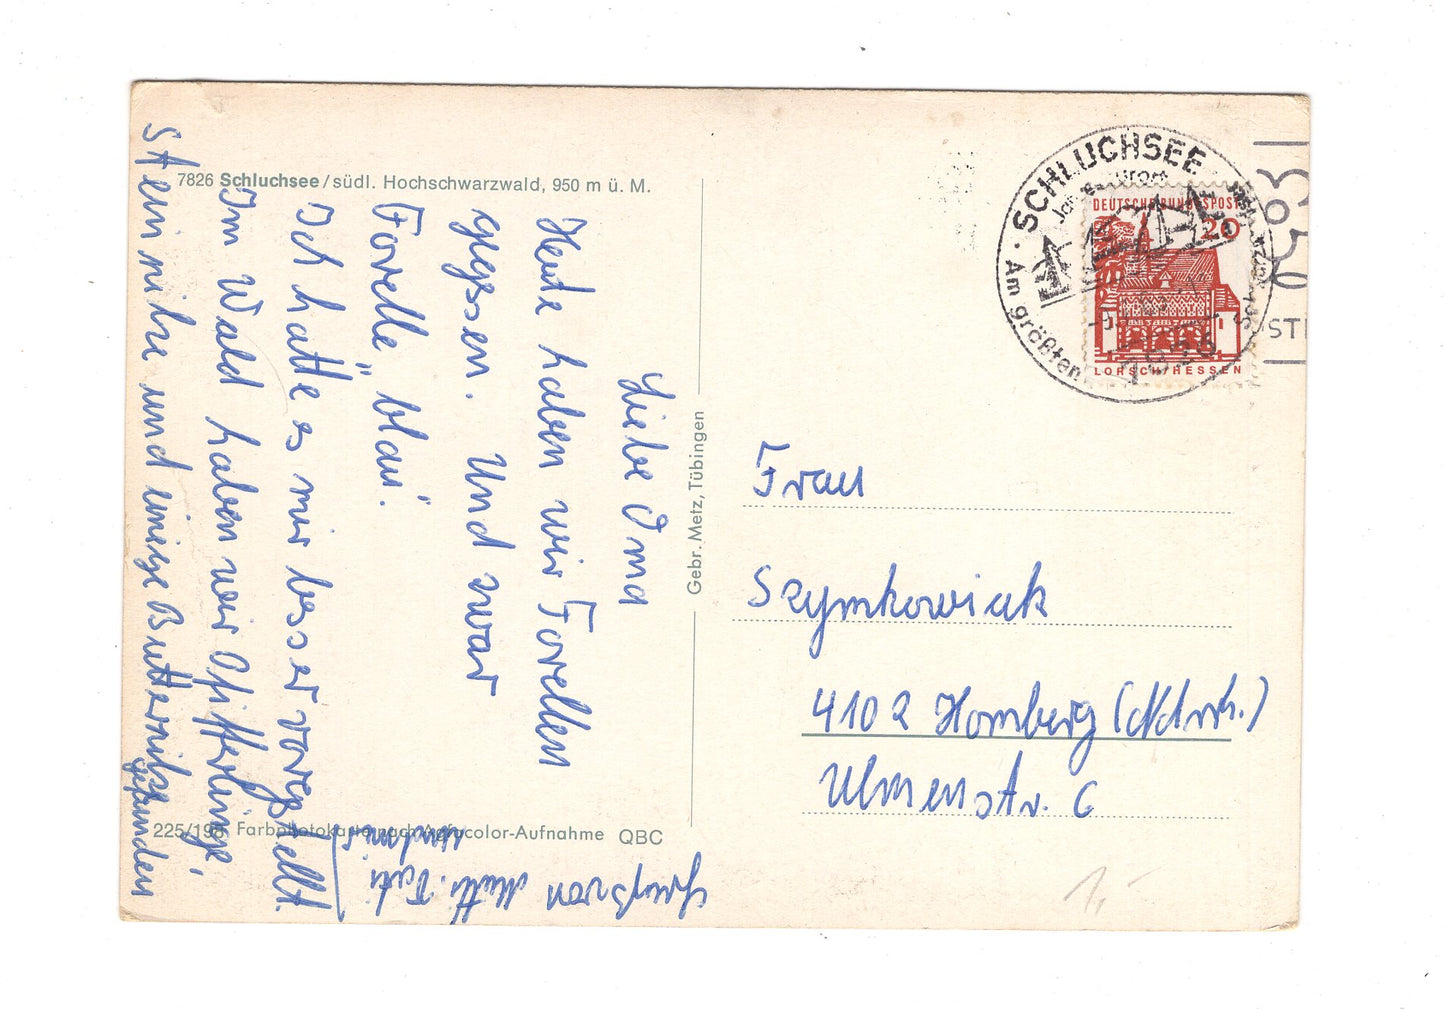 7826 Schluchsee/südl. Hochschwarzwald, 950 m ü. M.
Liebe Oma
Heute haben wir Forellen
gegessen. Und zwar
Forelle „blau".
Ich hatte es mir besser vorgestellt.
Im Wald haben wir Pfifferlinge,
Steinpilze und einige Butterpilze
gefunden
Gruß von Mutti, Vati
und mir
225/198 Farbphotokarte nach Agfacolor-Aufnahme QBC
Gebr. Metz, Tübingen
SCHLUCHSEE
Am größten
7826
DEUTSCHE BUNDESPOST
20
LORSCH/HESSEN
Frau
Szymkowiak
4102 Homberg (Ndrrh.)
Ulmenstr. 6
1,-